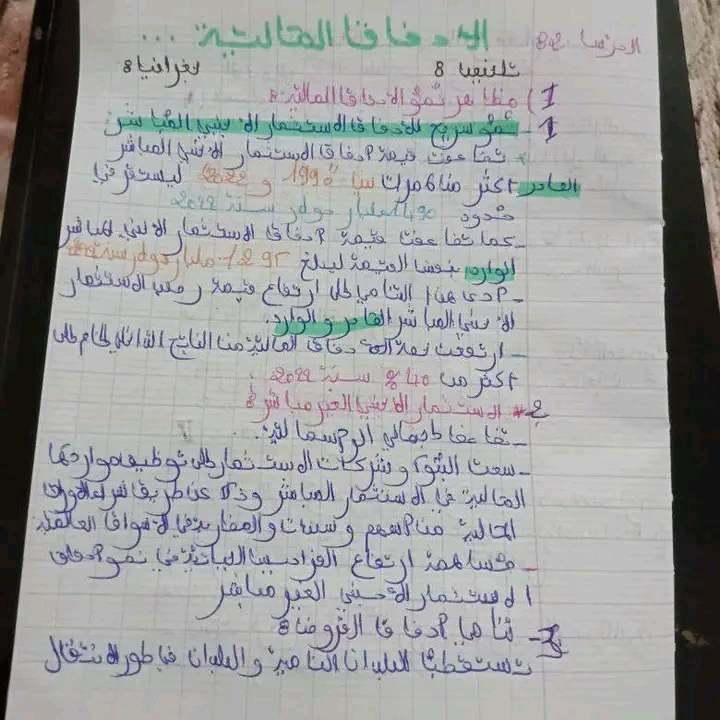 الدرس 8: الدفاقات المالية ...
تلخيص 8 جغرافيا 8
1) مظاهر نمو الدفاقات المالية 8
1- نمو سريع لدفاقات الاستثمار الأجنبي المباشر
- تضاعفت قيمة دفاقات الاستثمار الأجنبي المباشر
الصادر أكثر من 6 مرات بين 1990 و 2022 ليستقر في
حدود 1490 مليار دولار سنة 2022
- كما تضاعفت قيمة دفاقات الاستثمار الأجنبي المباشر
الوارد بنفس القيمة ليبلغ 1295 مليار دولار سنة 2022
- أدى هذا التنامي إلى ارتفاع قيمة رصيد الاستثمار
الأجنبي المباشر الصادر والوارد.
- ارتفعت نسبة الدفاقات المالية من الناتج الداخلي الخام إلى
أكثر من 40% سنة 2022.
2- الاستثمار الأجنبي الغير مباشر 8
- تضاعف إجمالي الرسمالية...
- سعت البنوك وشركات الاستثمار إلى توظيف مواردها
المالية في الاستثمار المباشر وذلك عن طريق شراء الأوراق
المالية من أسهم وسندات والمضاربة في الأسواق العالمية
- مساهمة ارتفاع الفراديس الجبائية في نمو دفاق
الاستثمار الأجنبي الغير مباشر
3- تنامي دفاقات القروض 8
تستقطب البلدان النامية والبلدان في طور الانتقال